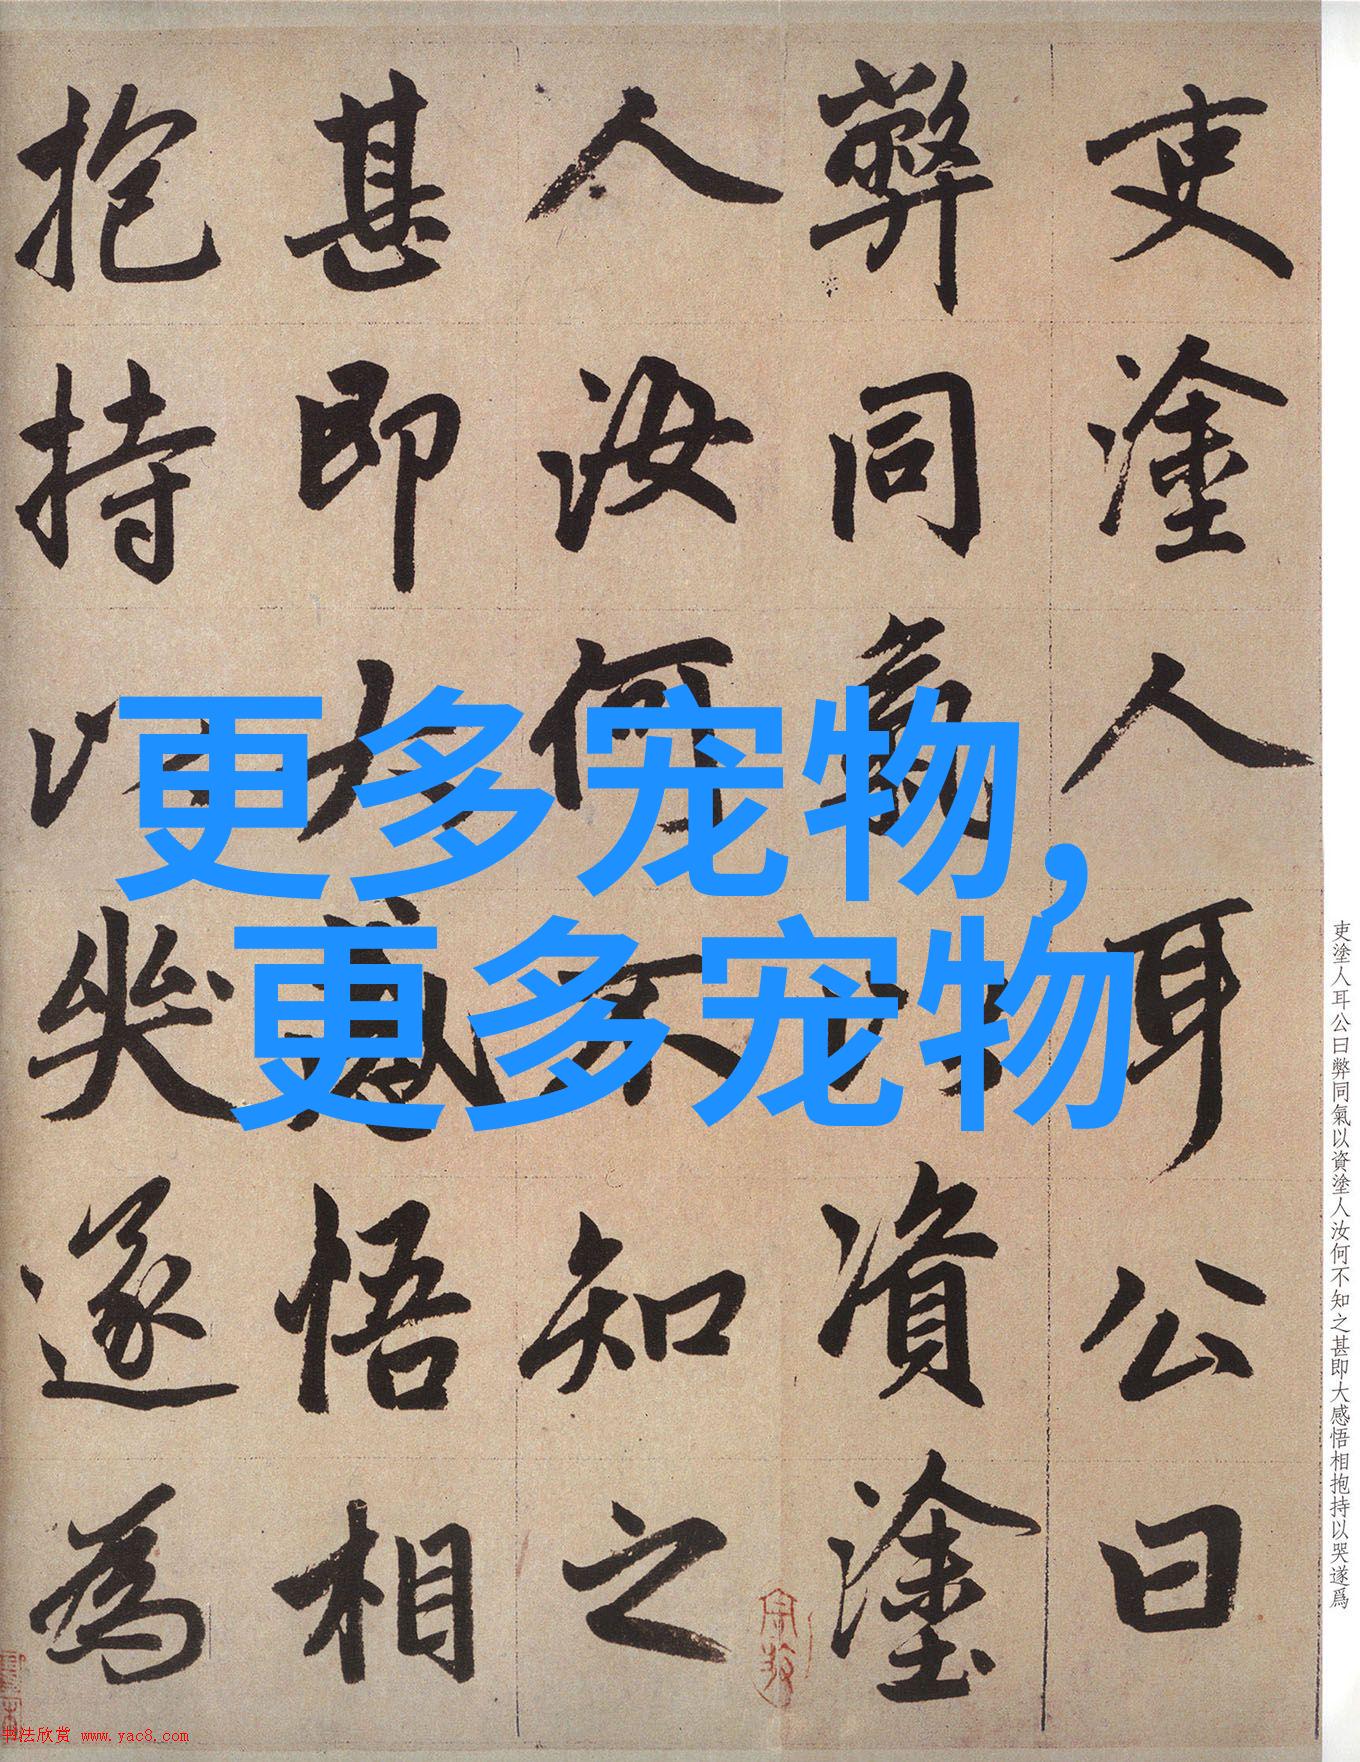 更多宠物，
更多宠物
吏塗人耳公曰
弊同氣以資塗
人汝何不知之
甚即大感悟相
抱持以哭遂為
吏塗人耳公曰弊同氣以資塗人汝何不知之甚即大感悟相抱持以哭遂爲
书法欣赏 www.yac8.com